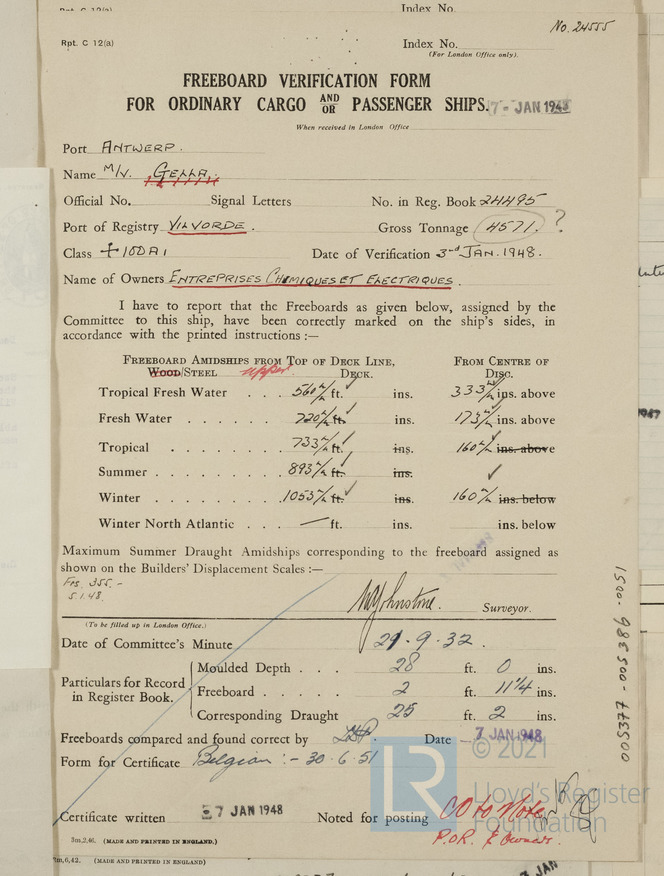 Index No.
No. 24555
Rpt. C 12(a)
Index No.
(For London Office only).
FREEBOARD VERIFICATION FORM
FOR ORDINARY CARGO AND OR PASSENGER SHIPS.
7 - JAN 1948
When received in London Office
Port ANTWERP.
Name M/V. GELLA.
Official No. Signal Letters No. in Reg. Book 24495
Port of Registry VILVORDE. Gross Tonnage 4571. ?
Class +100A1 Date of Verification 3rd JAN. 1948.
Name of Owners ENTREPRISES CHIMIQUES ET ELECTRIQUES.
I have to report that the Freeboards as given below, assigned by the
Committee to this ship, have been correctly marked on the ship's sides, in
accordance with the printed instructions :—
FREEBOARD AMIDSHIPS FROM TOP OF DECK LINE, FROM CENTRE OF
WOOD/STEEL upper DECK. DISC.
Tropical Fresh Water . . . 560 m/m ft. ins. 333 m/m ins. above
Fresh Water . . . . 720 m/m ft. ins. 173 m/m ins. above
Tropical . . . . . . . 733 m/m ft. ins. 160 m/m ins. above
Summer . . . . . . . . 893 m/m ft. ins.
Winter . . . . . . . . 1053 m/m ft. ins. 160 m/m ins. below
Winter North Atlantic . . . — ft. ins. ins. below
Maximum Summer Draught Amidships corresponding to the freeboard assigned as
shown on the Builders' Displacement Scales :—
Frs. 355.-
5.1.48.
Johnstone. Surveyor.
(To be filled up in London Office.)
Date of Committee's Minute 29.9.32.
Particulars for Record in Register Book.
Moulded Depth . . . 28 ft. 0 ins.
Freeboard . . . . . 2 ft. 11¼ ins.
Corresponding Draught 25 ft. 2 ins.
Freeboards compared and found correct by Date - 7 JAN 1948
Form for Certificate Belgian :- 30.6.51
© 2021
LR
Lloyd's Register
Foundation
Certificate written 7 JAN 1948 Noted for posting CO to Note
P.O.R. & Owners.
3m,2,46. (MADE AND PRINTED IN ENGLAND.)
3m,6,42. (MADE AND PRINTED IN ENGLAND)
JAN
005377-005386-0051